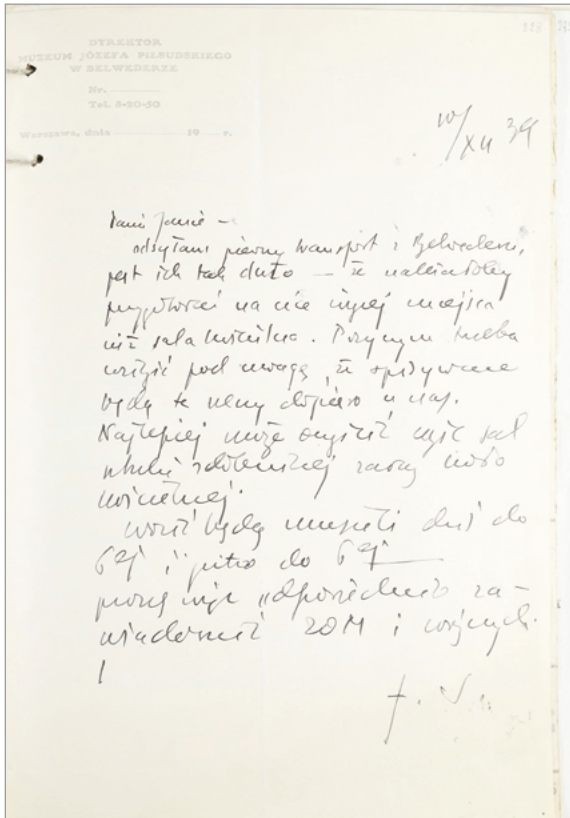 228
DYREKTOR
MUZEUM JÓZEFA PIŁSUDSKIEGO
W BELWEDERZE
Nr.
Tel. 8-20-50
Warszawa, dnia 19 r.
10/XII 39
Panie Janie –
odsyłam pierwszy transport z Belwederu,
jest ich tak dużo – że należałoby
przygotować na nie więcej miejsca
niż sala kościelna. Przy tym trzeba
wziąć pod uwagę, że spisywane
będą te rzeczy dopiero u nas.
Najlepiej może oczyścić część sal
sztuki zdobniczej zaraz koło
kościelnej.
Wozić będą musieli dziś do
6ej i jutro do 6ej
proszę więc odpowiednio za-
wiadomić ZOM i woźnych.